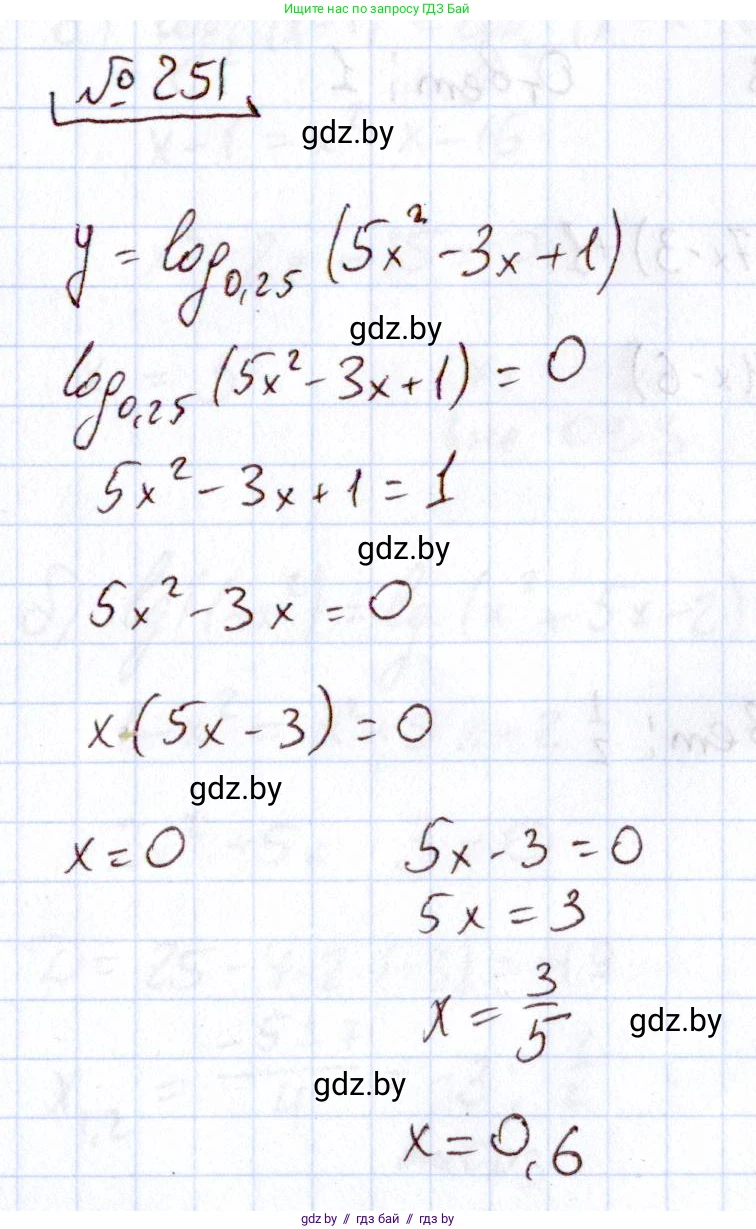 Ищите нас по запросу ГДЗ Бай
№ 251
gdz.by
y = log₀,₂₅ (5x² - 3x + 1)
gdz.by
log₀,₂₅ (5x² - 3x + 1) = 0
5x² - 3x + 1 = 1
gdz.by
5x² - 3x = 0
x·(5x - 3) = 0
gdz.by
x = 0
5x - 3 = 0
5x = 3
x = 3/5
gdz.by
gdz.by
x = 0,6
gdz.by // гдз бай // гдз by